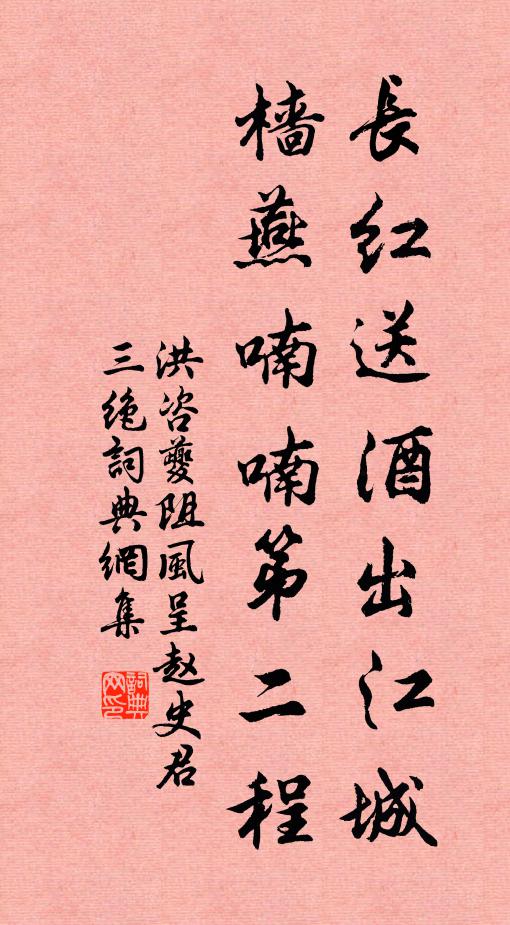 長红送酒出江城
檣燕喃喃第二程
洪咨夔阻風呈赵史君
三绝詞典網集
詞典網印